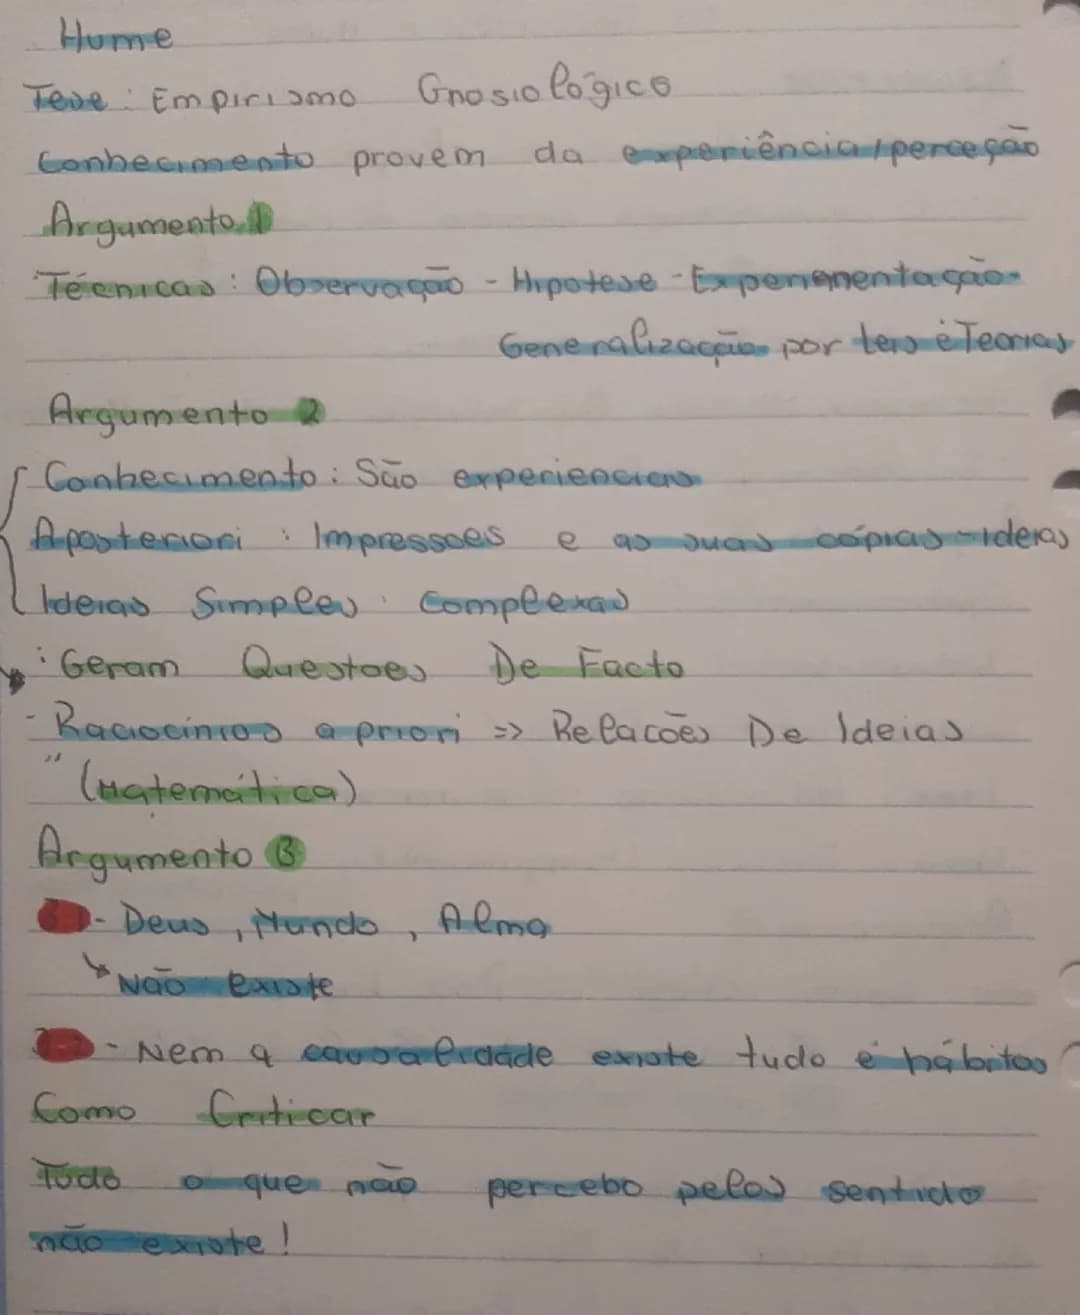 Hume
Tese: Empirismo Gnosiológico
Conhecimento provem da experiência/perceção
Argumento 1
Técnicas: Observação - Hipotese - Experienmentação
Generalização por leis e Teorias
Argumento 2
Conhecimento: São experiencias
Aposteriori : Impressoes e as suas cópias - ideias
Ideias Simples. Complexas
: Geram Questoes De Facto
- Raciocínios a priori => Relacões De Ideias
" (Matemática)
Argumento 3
3.1 - Deus, Mundo, Alma
↳ Não existe
3.2 - Nem a causalidade existe tudo é hábitos
Como Criticar
Tudo o que não percebo pelos sentido
não existe!